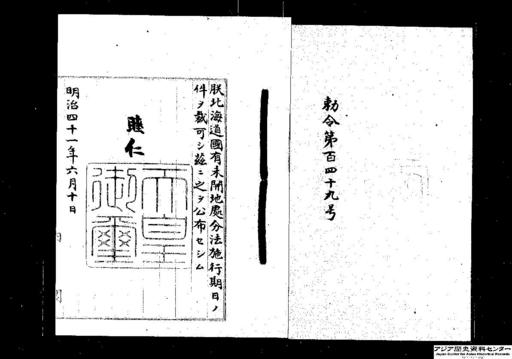 勅令第百四十九号
朕北海道國有未開地處分法施行期日ノ
件ヲ裁可シ茲ニ之ヲ公布セシム
睦仁
天皇
御璽
明治四十一年六月十日
アジア歴史資料センター
Japan Center for Asian Historical Records